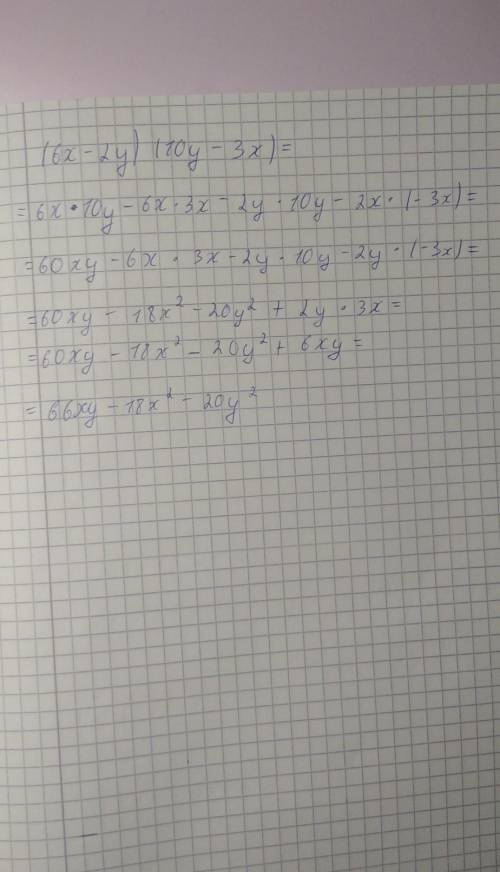 (6x-2y) (10y-3x)=
=6x·10y-6x·3x-2y·10y-2x·(-3x)=
=60xy-6x·3x-2y·10y-2y·(-3x)=
=60xy-18x²-20y²+2y·3x=
=60xy-18x²-20y²+6xy=
=66xy-18x²-20y²